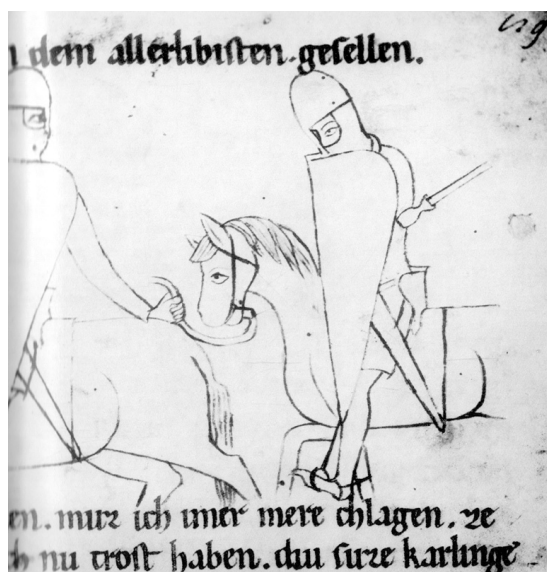 dem allerlibisten.gesellen.
en. muz ich imer mere chlagen. ze
h nu trost haben. diu suze karlinge